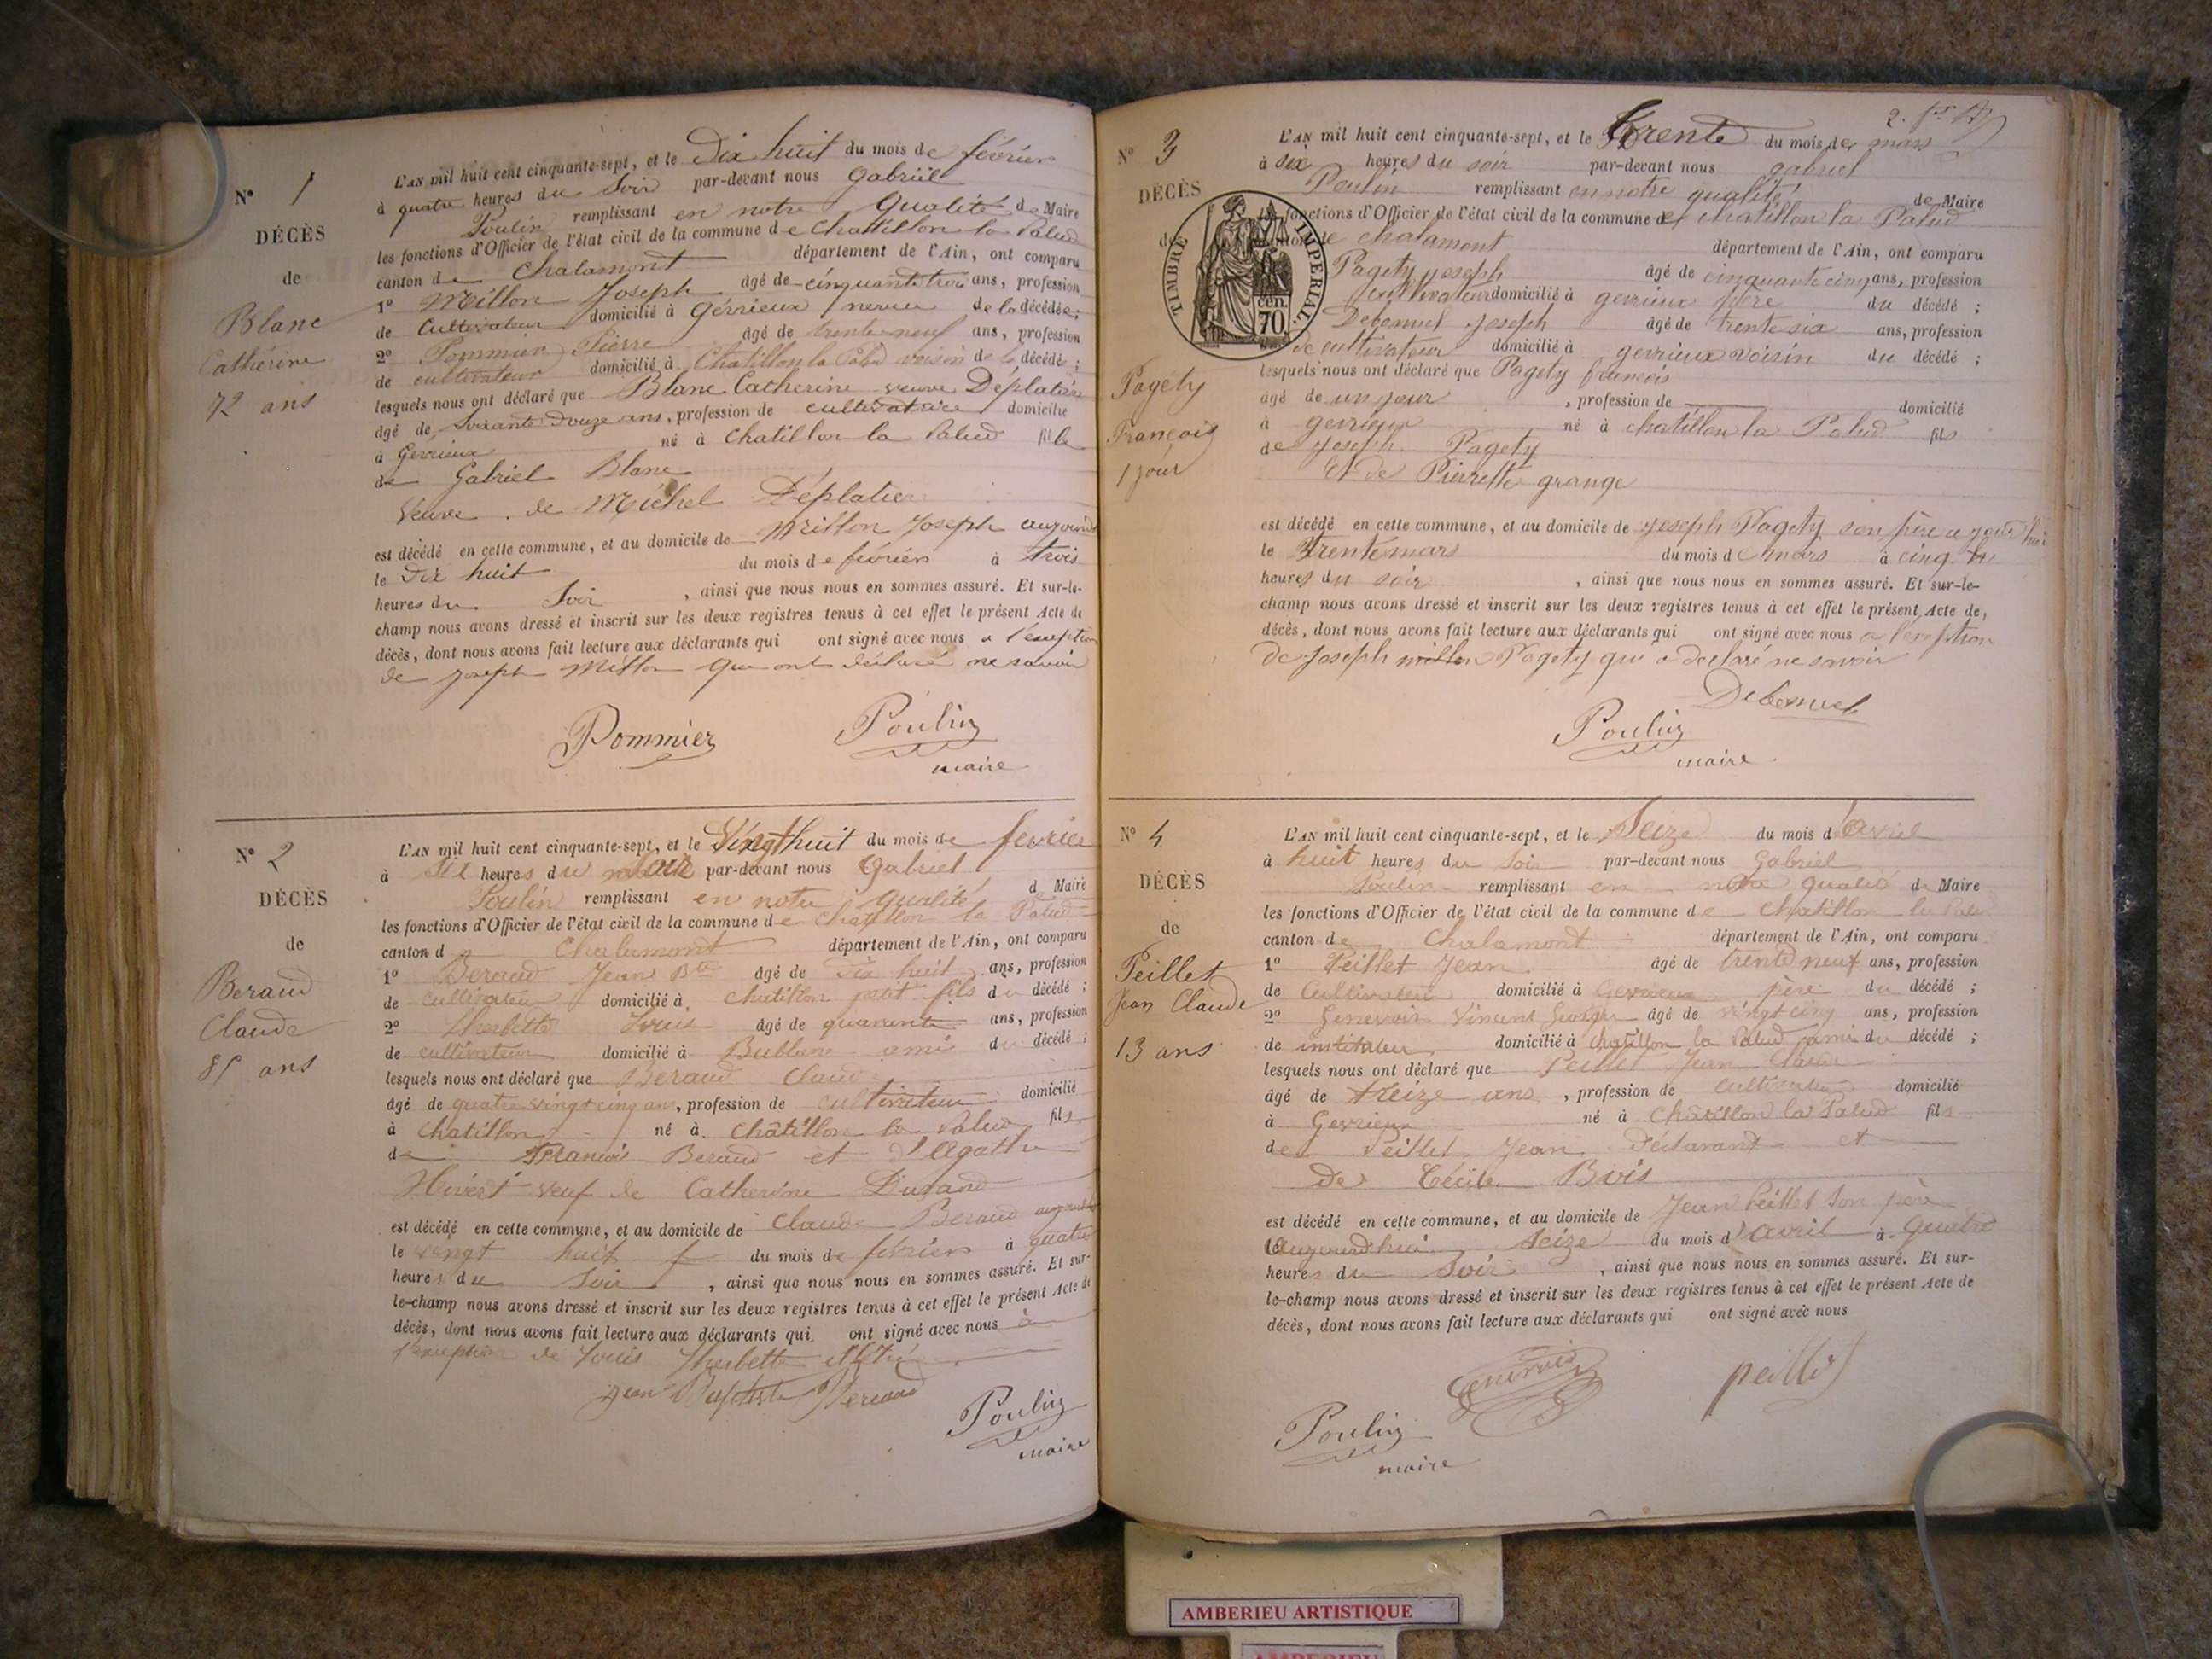 N° 1
DÉCÈS
de
Blanc
Cathérine
72 ans
L'AN mil huit cent cinquante-sept, et le Dix huit du mois de février
à quatre heures du Soir par-devant nous Gabriel
Poulin remplissant en notre qualité de Maire
les fonctions d'Officier de l'état civil de la commune de Chatillon la Palud
canton de Chalamont département de l'Ain, ont comparu
1° Millon Joseph âgé de cinquante trois ans, profession
de Cultivateur domicilié à Gévrieux neveu de la décédée ;
2° Pommier Pierre âgé de trente-neuf ans, profession
de cultivateur domicilié à Chatillon la Palud voisin de la décédée ;
lesquels nous ont déclaré que Blanc Catherine veuve Déplatier
âgé de soixante douze ans, profession de cultivatrice domicilié
à Gevrieux né à Chatillon la Palud fille
de Gabriel Blanc
Veuve de Michel Déplatier
est décédé en cette commune, et au domicile de Millon Joseph
le dix huit du mois de février à trois
heures du Soir, ainsi que nous nous en sommes assuré. Et sur-le-
champ nous avons dressé et inscrit sur les deux registres tenus à cet effet le présent Acte de
décès, dont nous avons fait lecture aux déclarants qui ont signé avec nous a l'exeption
de joseph Millon que ont déclaré ne savoir
Pommier Poulin
maire
N° 2
DÉCÈS
de
Beraud
Claude
85 ans
L'AN mil huit cent cinquante-sept, et le Vingt huit du mois de fevrier
à heures du par-devant nous Gabriel
Poulin remplissant en notre qualité de Maire
les fonctions d'Officier de l'état civil de la commune de Chatillon la Palud
canton de Chalamont département de l'Ain, ont comparu
1° Beraud Jean Bte âgé de dix huit ans, profession
de cultivateur domicilié à Chatillon petit fils du décédé ;
2° Herbette Louis âgé de quarante ans, profession
de cultivateur domicilié à Bublane ami du décédé ;
lesquels nous ont déclaré que Beraud Claude
âgé de quatre vingt cinq ans, profession de cultivateur domicilié
à Chatillon né à Châtillon la Palud fils
de François Beraud et d'Agathe
veuf de Catherine Durand
est décédé en cette commune, et au domicile de Claude Beraud
le vingt huit du mois de février à quatre
heures du Soir, ainsi que nous nous en sommes assuré. Et sur-
le-champ nous avons dressé et inscrit sur les deux registres tenus à cet effet le présent Acte de
décès, dont nous avons fait lecture aux déclarants qui ont signé avec nous à
l'exeption de Louis Herbette
jean Baptiste Beraud
Poulin
maire
N° 3
DÉCÈS
de
TIMBRE IMPERIAL.
cen.
70
Pagety
François
1 jour
L'AN mil huit cent cinquante-sept, et le trente du mois de mars
à six heures du soir par-devant nous gabriel
Poulin remplissant en notre qualité de Maire
les fonctions d'Officier de l'état civil de la commune de chatillon la Palud
canton de chalamont département de l'Ain, ont comparu
Pagety joseph âgé de cinquante cinq ans, profession
cultivateur domicilié à gevrieux père du décédé ;
joseph âgé de trente six ans, profession
de cultivateur domicilié à gevrieux voisin du décédé ;
lesquels nous ont déclaré que Pagety françois
âgé de un jour, profession de domicilié
à gevrieux né à chatillon la Palud fils
de joseph Pagety
Et de Pierrette grange
est décédé en cette commune, et au domicile de joseph Pagety son père
le trente mars du mois de mars à cinq
heures du soir, ainsi que nous nous en sommes assuré. Et sur-le-
champ nous avons dressé et inscrit sur les deux registres tenus à cet effet le présent Acte de
décès, dont nous avons fait lecture aux déclarants qui ont signé avec nous a l'exeption
de joseph millon Pagety qui a declaré ne savoir
Poulin
maire
N° 4
DÉCÈS
de
Peillet
Jean Claude
13 ans
L'AN mil huit cent cinquante-sept, et le Seize du mois d'avril
à huit heures du Soir par-devant nous Gabriel
Poulin remplissant en notre qualité de Maire
les fonctions d'Officier de l'état civil de la commune de Chatillon la Palud
canton de Chalamont département de l'Ain, ont comparu
1° Peillet Jean âgé de trente neuf ans, profession
de Cultivateur domicilié à Gevrieux père du décédé ;
2° Vincent âgé de vingt cinq ans, profession
de instituteur domicilié à Chatillon la Palud ami du décédé ;
lesquels nous ont déclaré que Peillet Jean Claude
âgé de treize ans, profession de cultivateur domicilié
à Gevrieux né à Chatillon la Palud fils
de Peillet Jean Déclarant et
De Cécile Bois
est décédé en cette commune, et au domicile de Jean Peillet son père
aujourd'hui Seize du mois d'avril à quatre
heures du Soir, ainsi que nous nous en sommes assuré. Et sur-
le-champ nous avons dressé et inscrit sur les deux registres tenus à cet effet le présent Acte de
décès, dont nous avons fait lecture aux déclarants qui ont signé avec nous
peillet
Poulin
maire
AMBERIEU ARTISTIQUE
AMBERIEU